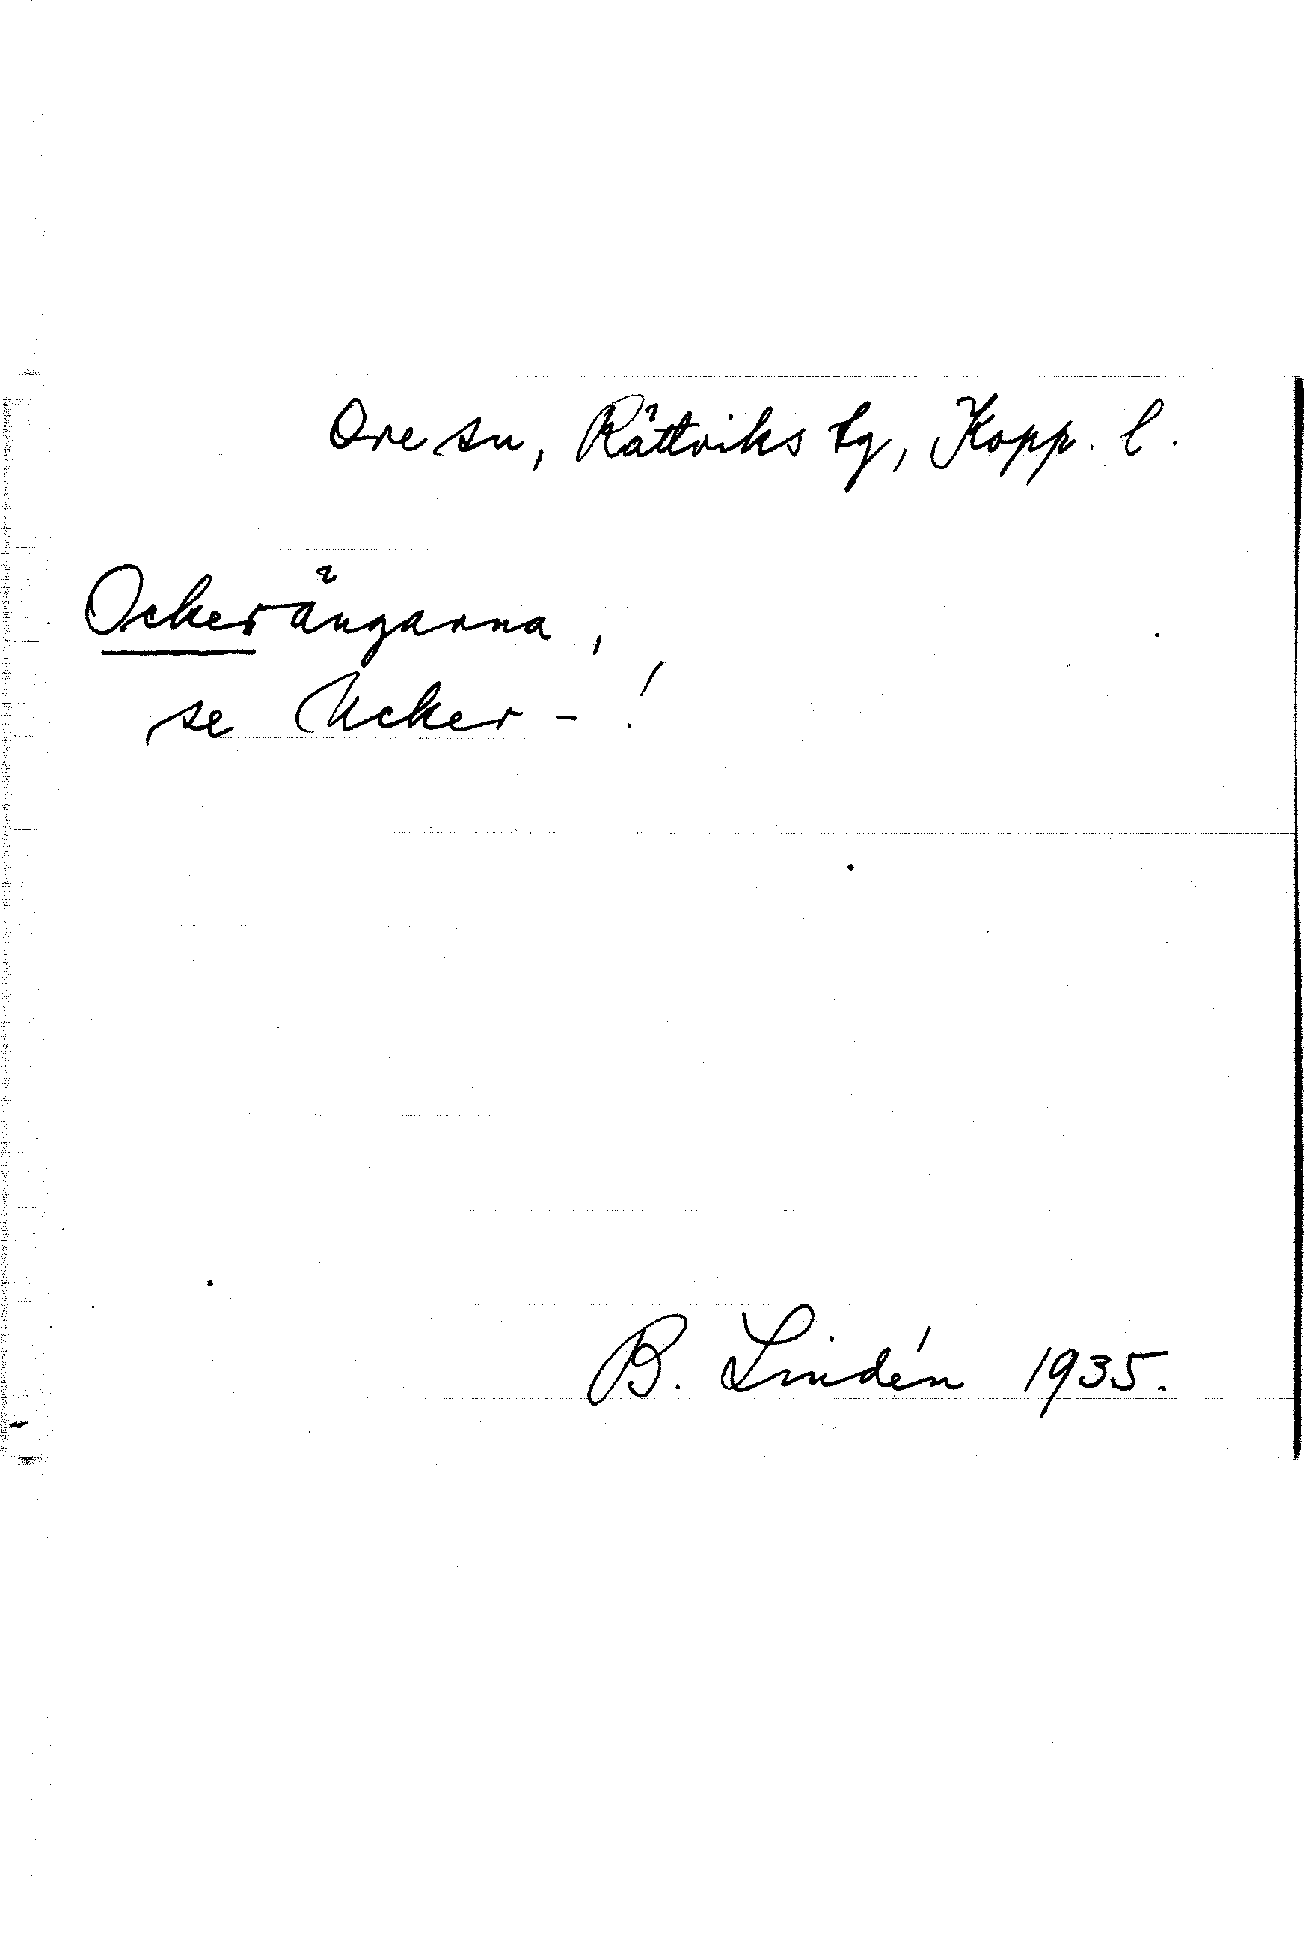 Ore sn, Rättviks tg, Kopp. l.
Ockerängarna,
se Ucker - !
B. Lindén 1935.